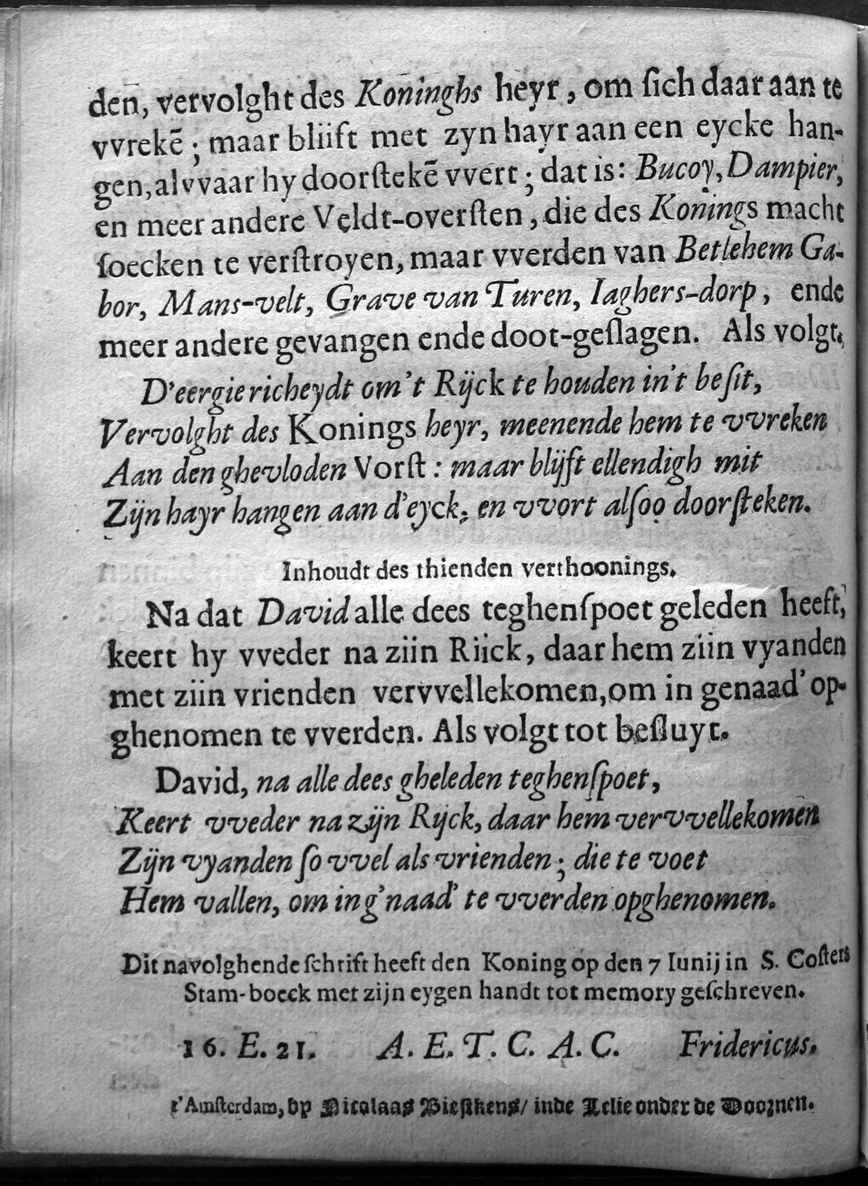 den, vervolght des Koninghs heyr, om ſich daar aan te
vvrekē; maar bliift met zyn hayr aan een eycke han-
gen, alvvaar hy doorſtekē vvert; dat is: Bucoy, Dampier,
en meer andere Veldt-overſten, die des Konings macht
ſoecken te verſtroyen, maar vverden van Betlehem Ga-
bor, Mans-velt, Grave van Turen, Iaghers-dorp, ende
meer andere gevangen ende doot-geſlagen. Als volgt.
D'eergiericheydt om't Rijck te houden in't beſit,
Vervolght des Konings heyr, meenende hem te vvreken
Aan den ghevloden Vorſt: maar blijft ellendigh mit
Zijn hayr hangen aan d'eyck; en vvort alſoo doorſteken.
Inhoudt des thienden verthoonings.
Na dat David alle dees teghenſpoet geleden heeft,
keert hy vveder na ziin Riick, daar hem ziin vyanden
met ziin vrienden vervvellekomen, om in genaad' op-
ghenomen te vverden. Als volgt tot beſluyt.
David, na alle dees gheleden teghenſpoet,
Keert vveder na zijn Rijck, daar hem vervvellekomen
Zijn vyanden ſo vvel als vrienden; die te voet
Hem vallen, om in g'naad' te vverden opghenomen.
Dit navolghende ſchrift heeft den Koning op den 7 Iunij in S. Coſters
Stam-boeck met zijn eygen handt tot memory geſchreven.
16. E. 21. A. E. T. C. A. C. Fridericus.
t'Amſterdam, by Nicolaas Bieſtkens/ inde Lelie onder de Doornen.